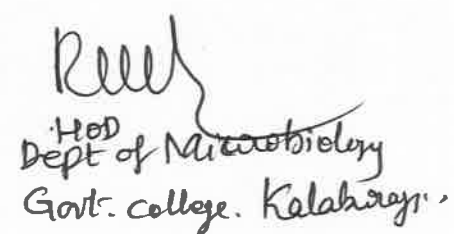 HOD
Dept of Microbiology
Govt. college. Kalaburagi.,